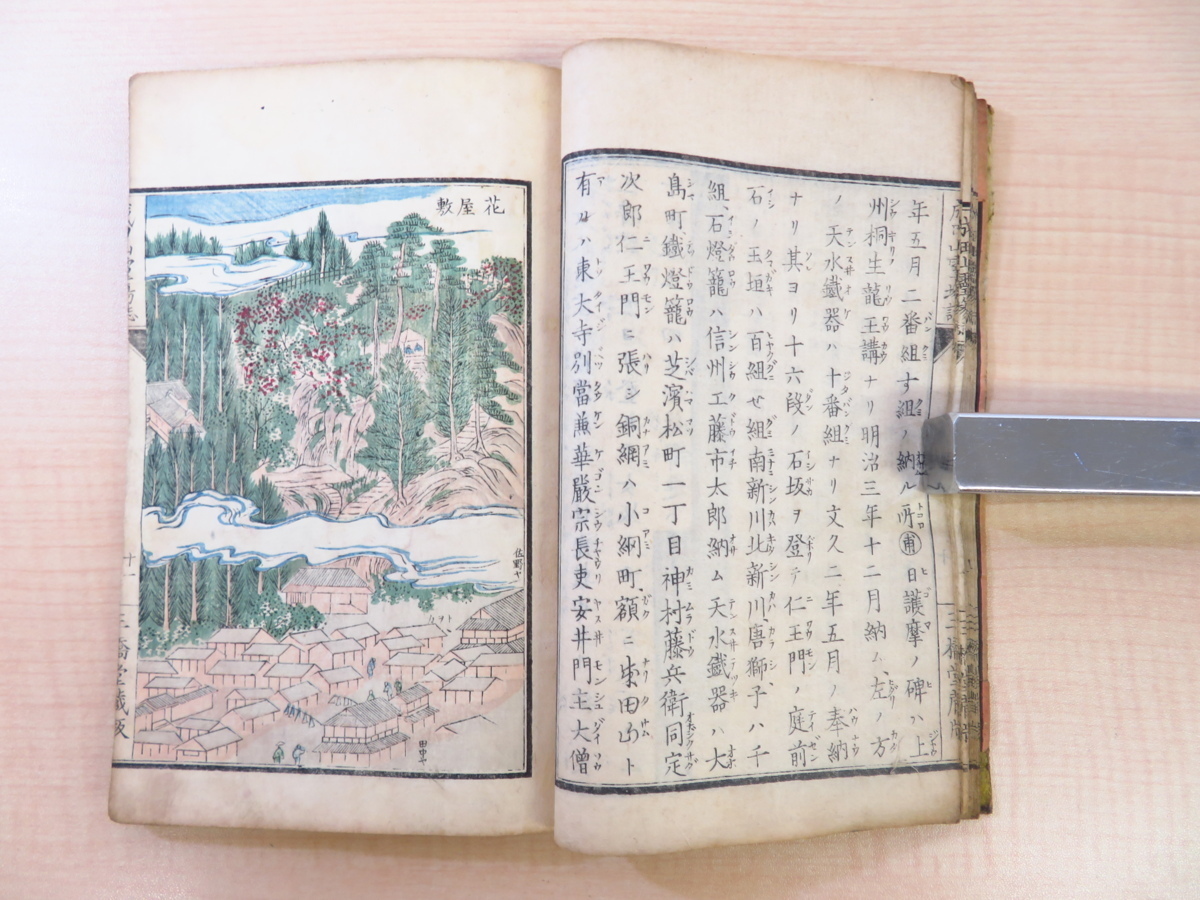 年五月二番組す組ノ納ル所甫日護摩ノ碑ハ上
州桐生龍王講ナリ明治三年十二月納ム、左ノ方
ノ天水鐵器ハ十番組ナリ文久二年五月ノ奉納
ナリ其ヨリ十六段ノ石坂ヲ登テ仁王門ノ庭前
石ノ玉垣ハ百組せ組南新川北新川、唐獅子ハ千
組、石燈籠ハ信州工藤市太郎納ム天水鐵器ハ大
島町鐵燈籠ハ芝濱松町一丁目神村藤兵衛同定
次郎仁王門ニ張シ銅網ハ小網町、額ニ成田山ト
有ルハ東大寺別當兼華嚴宗長吏安井門主大僧
花屋敷
佐野ヤ
田中ヤ
十一
三橋堂藏版